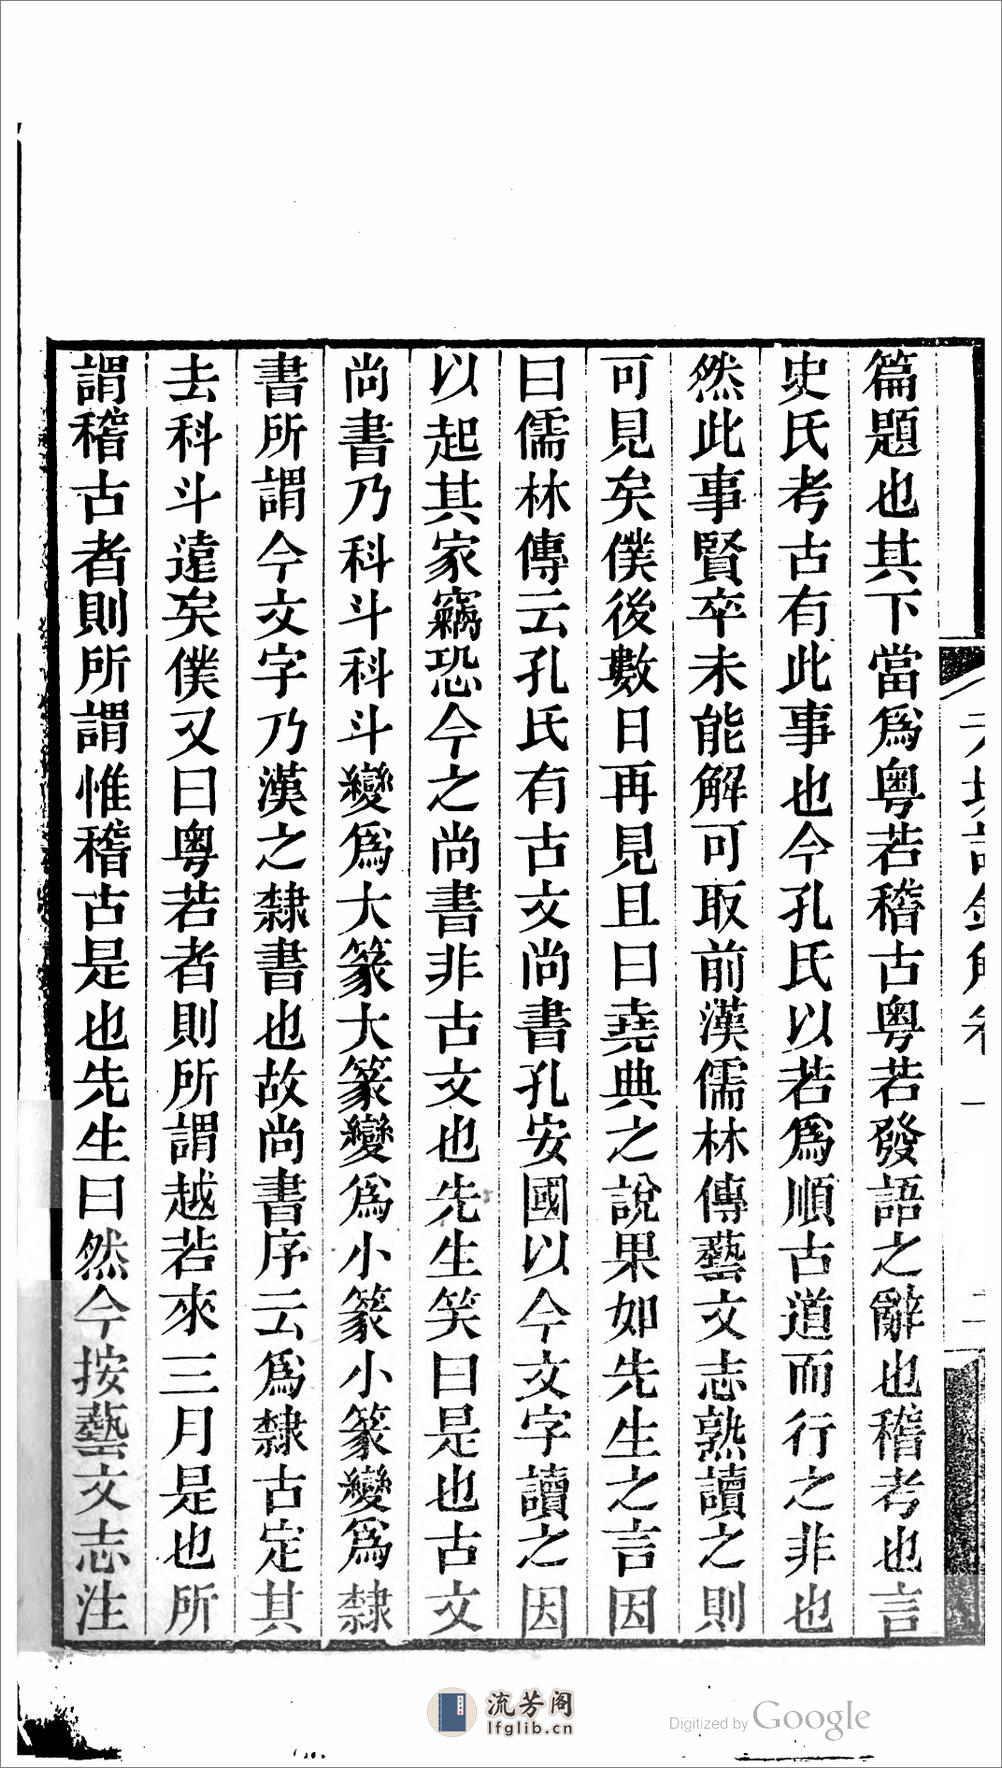 篇題也其下當爲粤若稽古粤若發語之辭也稽考也言
史氏考古有此事也今孔氏以若爲順古道而行之非也
然此事賢卒未能解可取前漢儒林傳藝文志熟讀之則
可見矣僕後數日再見且曰堯典之說果如先生之言因
曰儒林傳云孔氏有古文尚書孔安國以今文字讀之因
以起其家竊恐今之尚書非古文也先生笑曰是也古文
尚書乃科斗科斗變爲大篆大篆變爲小篆小篆變爲隸
書所謂今文字乃漢之隸書也故尚書序云爲隸古定其
去科斗遠矣僕又曰粤若者則所謂越若來三月是也所
謂稽古者則所謂惟稽古是也先生曰然今按藝文志注
流芳阁
lfglib.cn
Digitized by Google